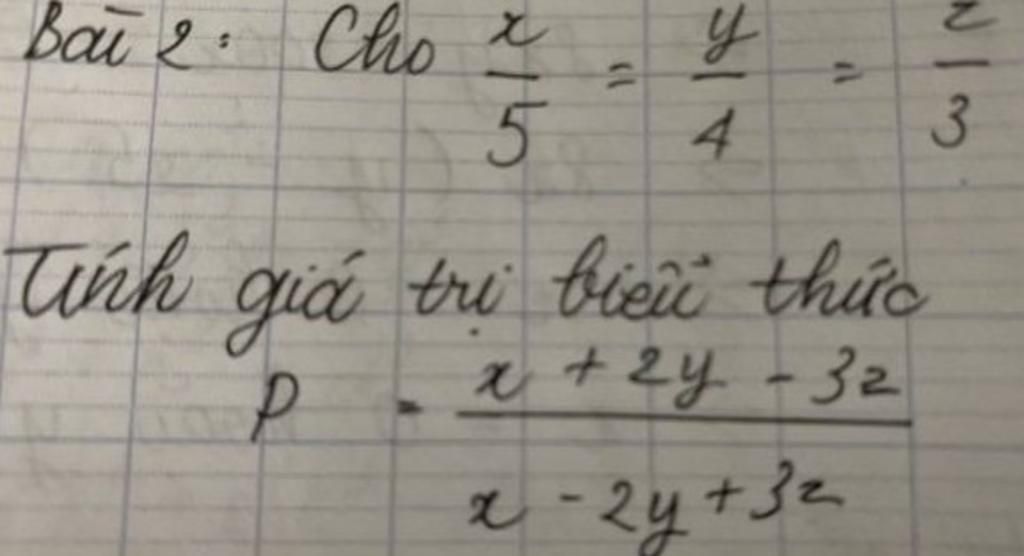 Bài 2: Cho x/5 = y/4 = z/3
Tính giá trị biểu thức
P = x + 2y - 3z / x - 2y + 3z